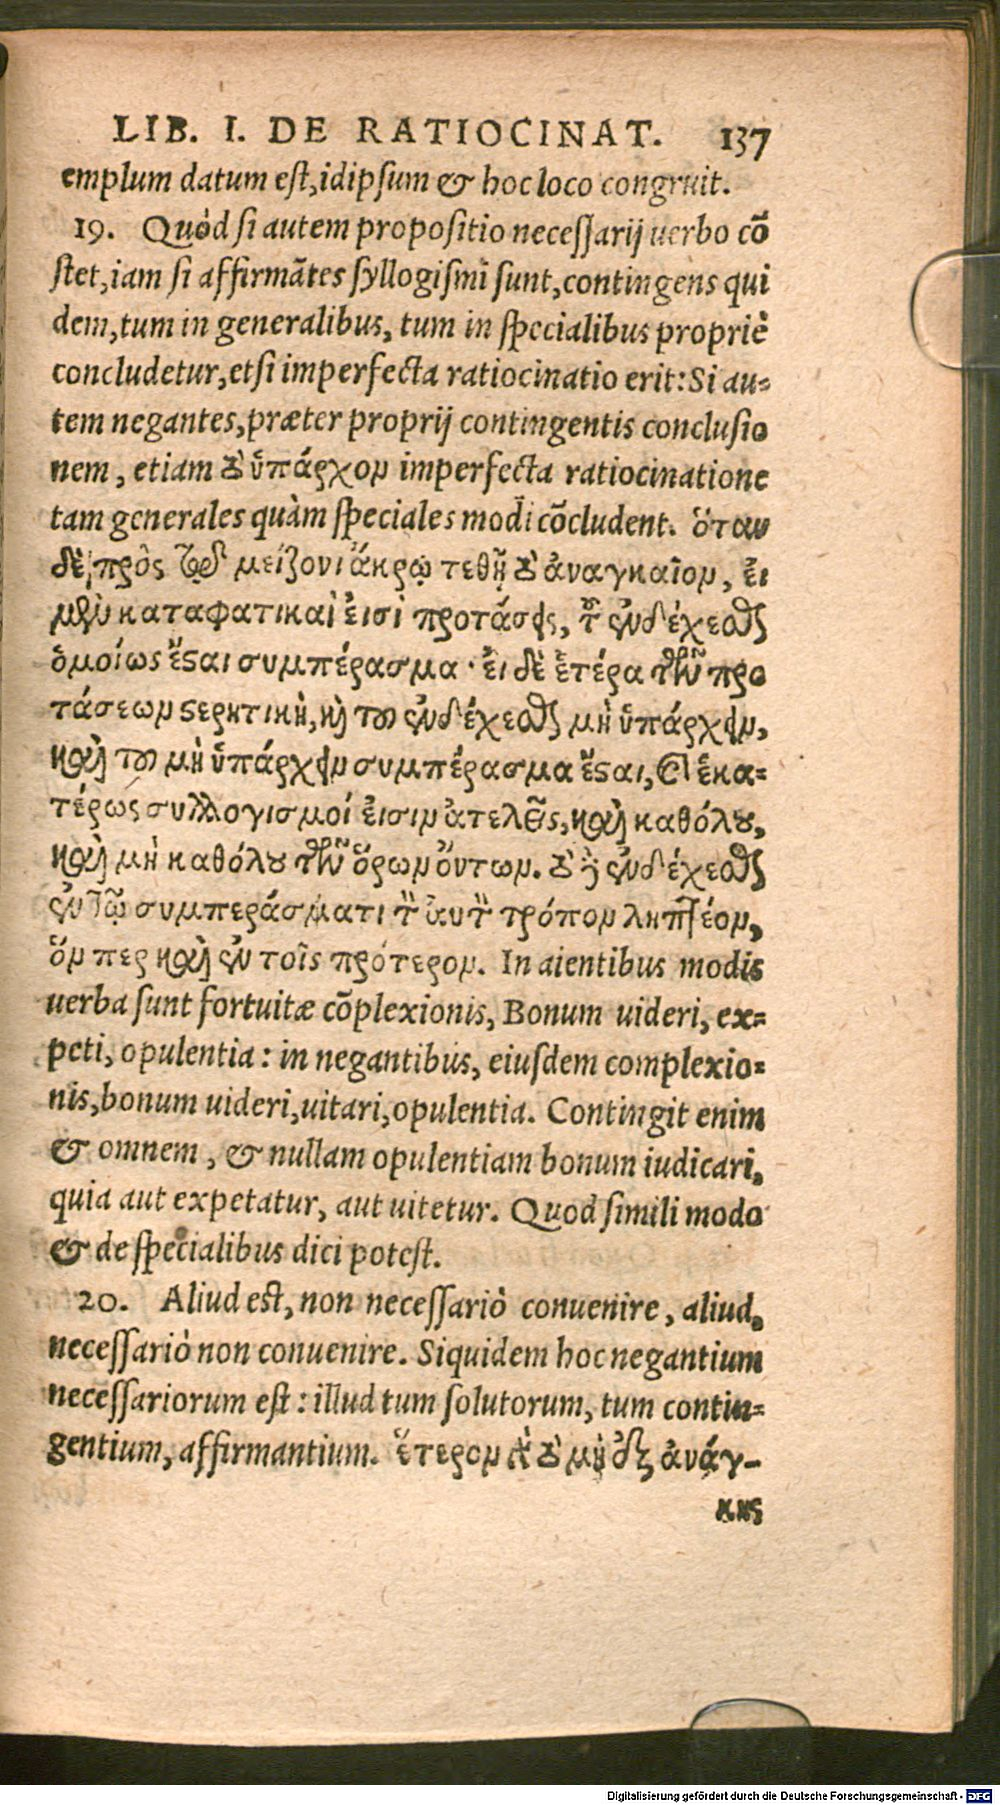 LIB. I. DE RATIOCINAT. 137
emplum datum est, idipsum & hoc loco congruit.
19. Quòd si autem propositio necessarij uerbo cõ
stet, iam si affirmãtes syllogismi sunt, contingens qui
dem, tum in generalibus, tum in specialibus propriè
concludetur, etsi imperfecta ratiocinatio erit: Si au-
tem negantes, præter proprij contingentis conclusio
nem, etiam τὸ ὑπάρχον imperfecta ratiocinatione
tam generales quàm speciales modi cõcludent. ὅταν
δὲ πρὸς τῷ μείζονι ἄκρῳ τεθῇ τὸ ἀναγκαῖον, εἰ
μὲν καταφατικαὶ εἰσὶ προτάσεις, τοῦ ἐνδέχεσθαι
ὁμοίως ἔσαι συμπέρασμα· εἰ δὲ ἑτέρα τῶν προ
τάσεων στερητικὴ, καὶ τοῦ ἐνδέχεσθαι μὴ ὑπάρχειν,
καὶ τοῦ μὴ ὑπάρχειν συμπέρασμα ἔσαι, ἑκα-
τέρως συλλογισμοί εἰσιν ἀτελεῖς, καὶ καθόλου,
καὶ μὴ καθόλου τῶν ὅρων ὄντων. τὸ δὲ ἐνδέχεσθαι
ἐν τῷ συμπεράσματι τὸν αὐτὸν τρόπον ληπτέον,
ὅν περ καὶ ἐν τοῖς πρότερον. In aientibus modis
uerba sunt fortuitæ cõplexionis, Bonum uideri, ex-
peti, opulentia: in negantibus, eiusdem complexio-
nis, bonum uideri, uitari, opulentia. Contingit enim
& omnem, & nullam opulentiam bonum iudicari,
quia aut expetatur, aut uitetur. Quod simili modo
& de specialibus dici potest.
20. Aliud est, non necessariò conuenire, aliud,
necessariò non conuenire. Siquidem hoc negantium
necessariorum est: illud tum solutorum, tum contin-
gentium, affirmantium. ἕτερον τὸ μὴ ἐξ ἀνάγ-
κης
Digitalisierung gefördert durch die Deutsche Forschungsgemeinschaft - DFG